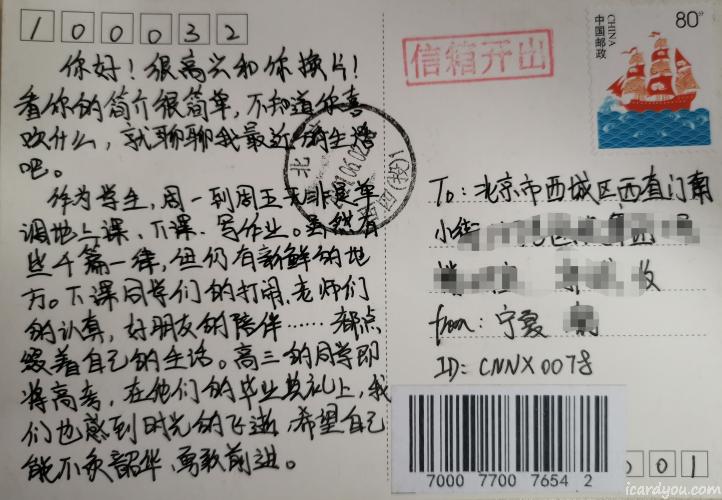 100032
你好！很高兴和你换片！
看你的简介很简单，不知道你喜
欢什么，就聊聊我最近的生活
吧。
作为学生，周一到周五无非是单
调地上课、下课、写作业。虽然有
些千篇一律，但仍有新鲜的地
方。下课同学们的打闹，老师们
的认真，好朋友的陪伴……都点
缀着自己的生活。高三的同学即
将高考，在他们的毕业典礼上，我
们也感到时光的飞逝，希望自己
能不负韶华，勇敢前进。
信箱开出
80分
中国邮政
CHINA
北
To: 北京市西城区西直门南
小街
收
from: 宁夏
ID: CNNX0078
7000 7700 7654 2
001
icardyou.com